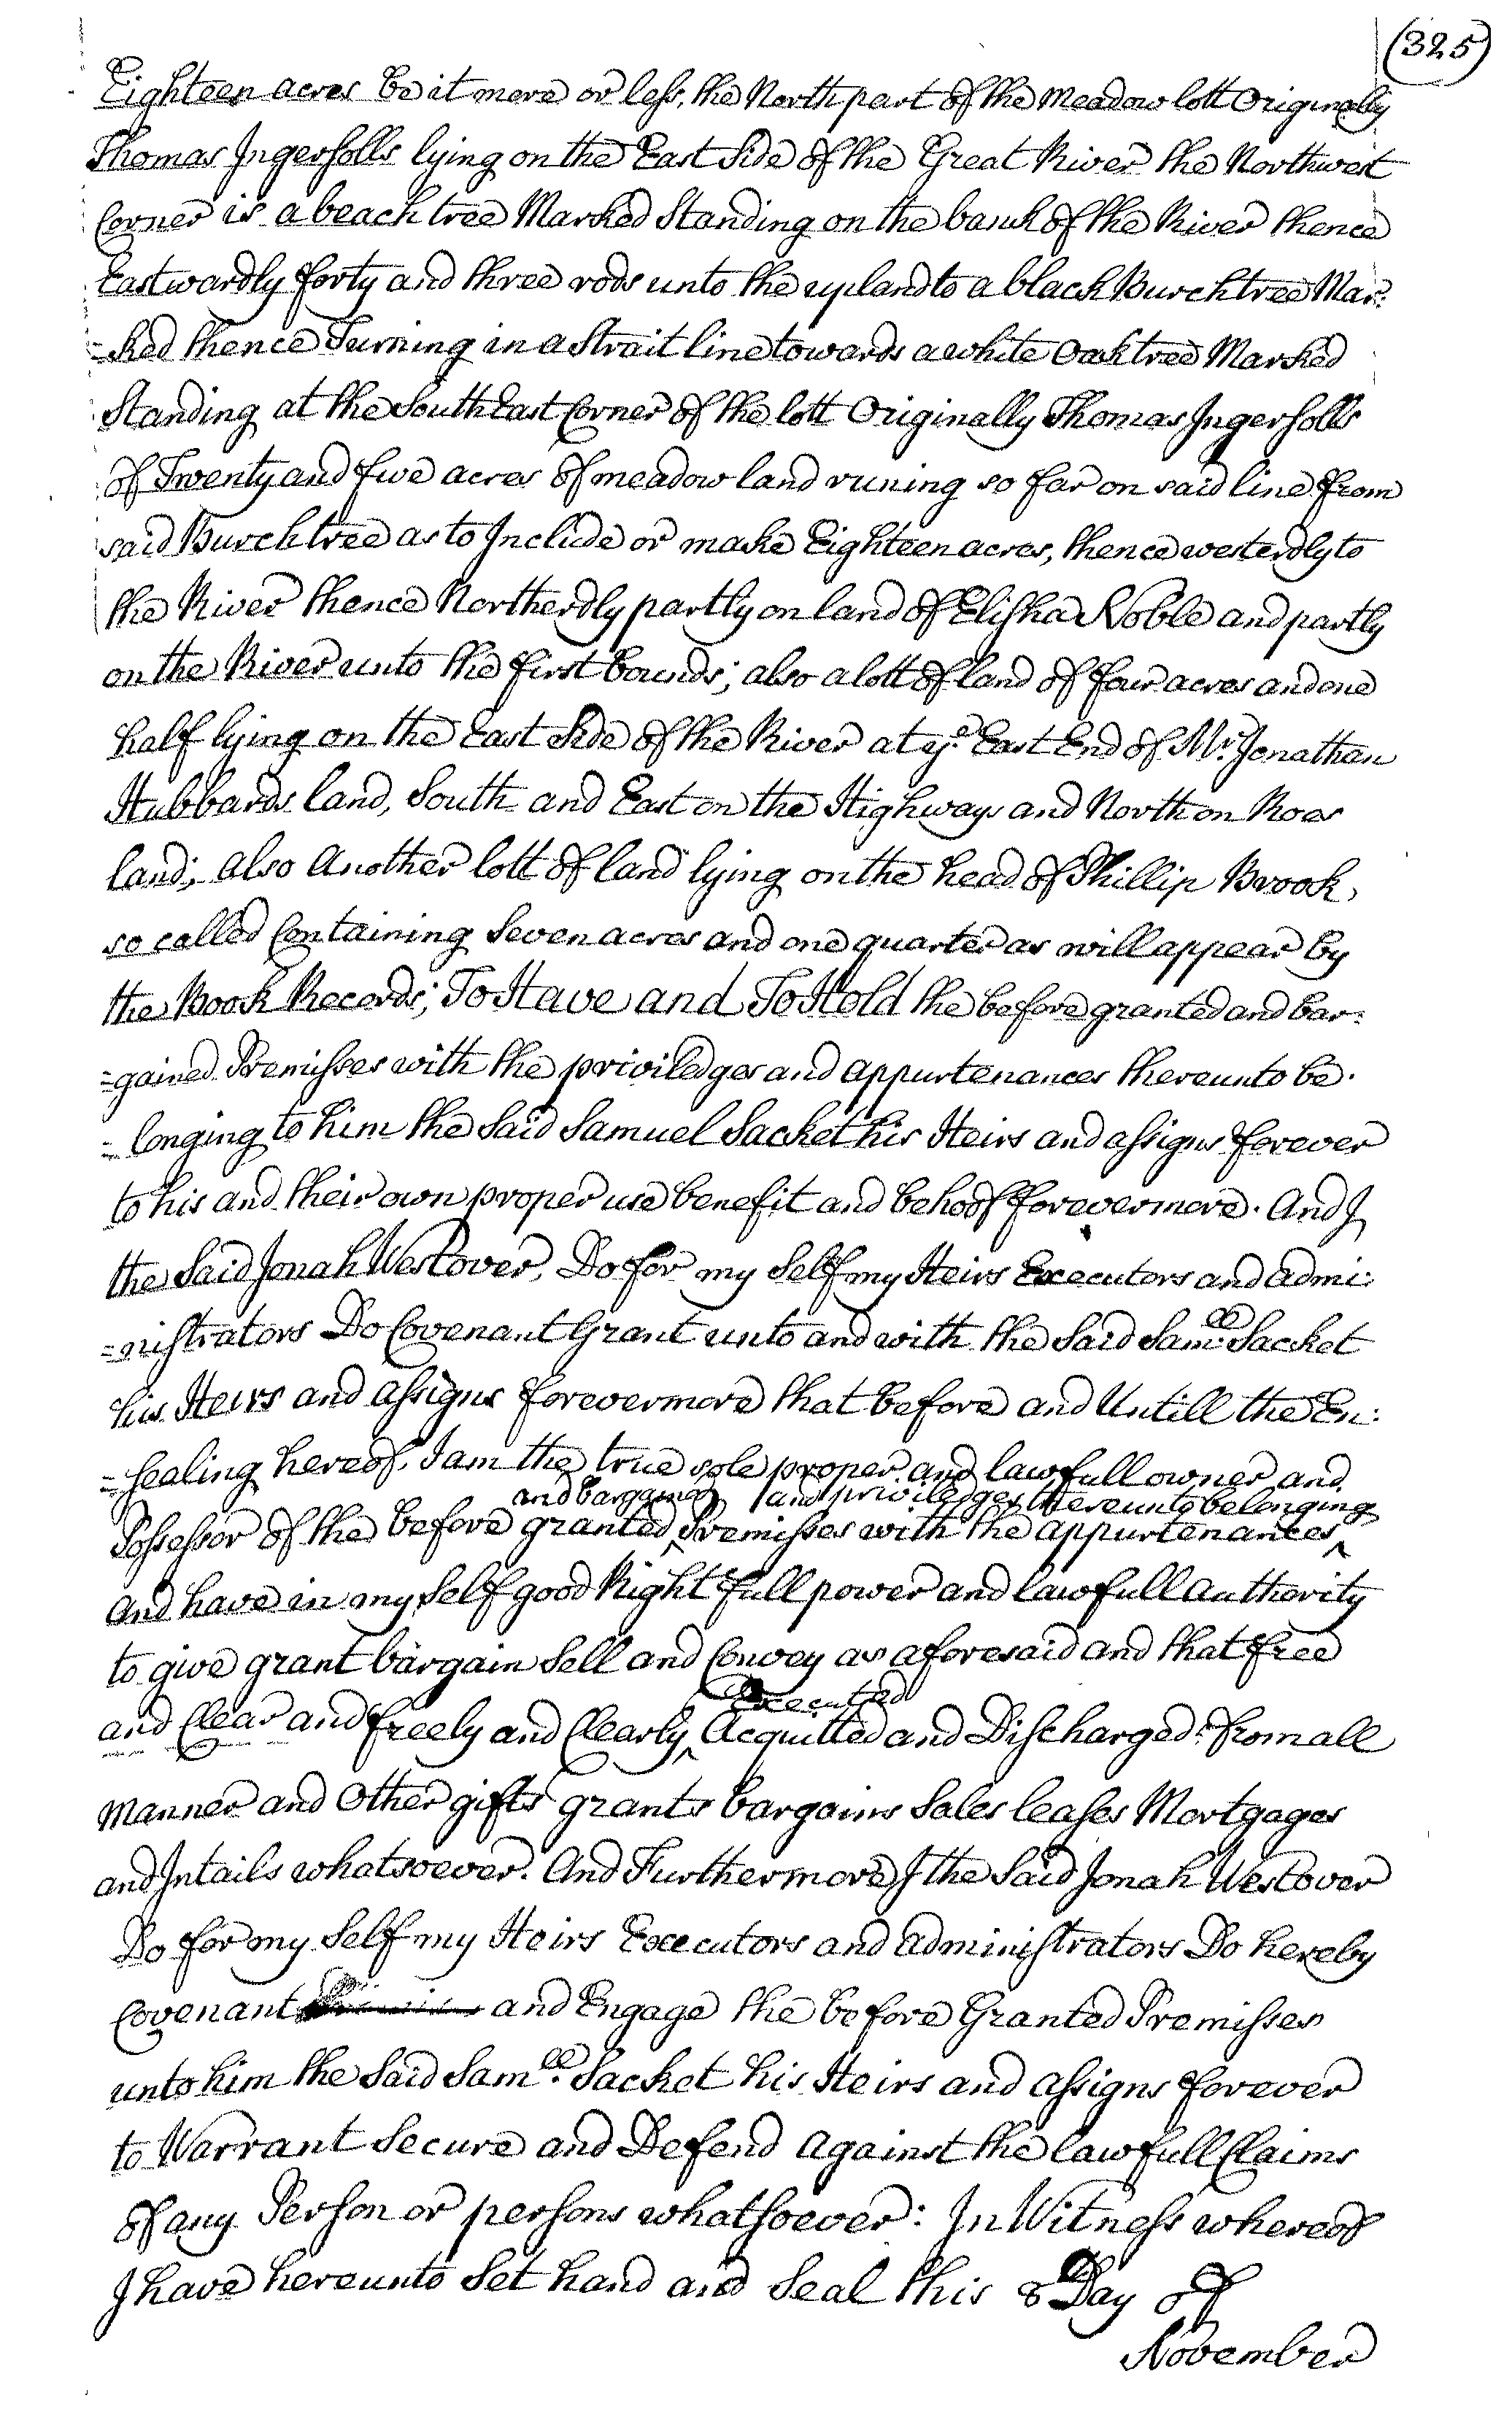 (325)
Eighteen acres be it more or less, the North part of the Meadow lott Originally
Thomas Ingersolls lying on the East Side of the Great River the Northwest
Corner is a beach tree Marked Standing on the bank of the River thence
Eastwardly forty and three rods unto the upland to a black Burch tree Mar:
=ked thence Turning in a Strait line towards a white Oak tree Marked
Standing at the South East Corner of the lott Originally Thomas Ingersolls
of Twenty and five acres of meadow land runing so far on said line from
said Burch tree as to Include or make Eighteen acres, thence westerdly to
the River thence Northerdly partly on land of Elisha Noble and partly
on the River unto the first bounds; also a lott of land of four acres and one
half lying on the East Side of the River at ye East End of Mr. Jonathan
Hubbards land, South and East on the Highways and North on Roes
land; also Another lott of land lying on the head of Phillip Brook,
so called Containing Seven acres and one quarter as will appear by
the Book Records; To Have and To Hold the before granted and bar:
=gained Premisses with the priviledges and appurtenances thereunto be.
=longing to him the Said Samuel Sacket his Heirs and assigns forever
to his and their own proper use benefit and behoof forevermore. And I
the Said Jonah Westover, Do for my Self my Heirs Executors and admi:
=nistrators Do Covenant Grant unto and with the Said Samll. Sacket
his Heirs and assigns forevermore that before and Untill the En:
=sealing hereof, I am the true sole proper and lawfull owner and
and bargained and priviledges thereunto belonging
Possessor of the before granted ‸ Premisses with the appurtenances ‸
and have in my Self good Right full power and lawfull authority
to give grant bargain Sell and Convey as aforesaid and that free
Executed
and Clear and freely and Clearly ‸ Acquitted and Discharged: from all
manner and Other gifts grants bargains Sales leases Mortgages
and Intails whatsoever. And Furthermore I the Said Jonah Westover
Do for my Self my Heirs Executors and administrators Do hereby
Covenant and Engage the before Granted Premisses
unto him the Said Samll. Sacket his Heirs and assigns forever
to Warrant Secure and Defend against the lawfull Claims
of any Person or persons whatsoever: In Witness whereof
I have hereunto Set hand and Seal this 8 Day of
November